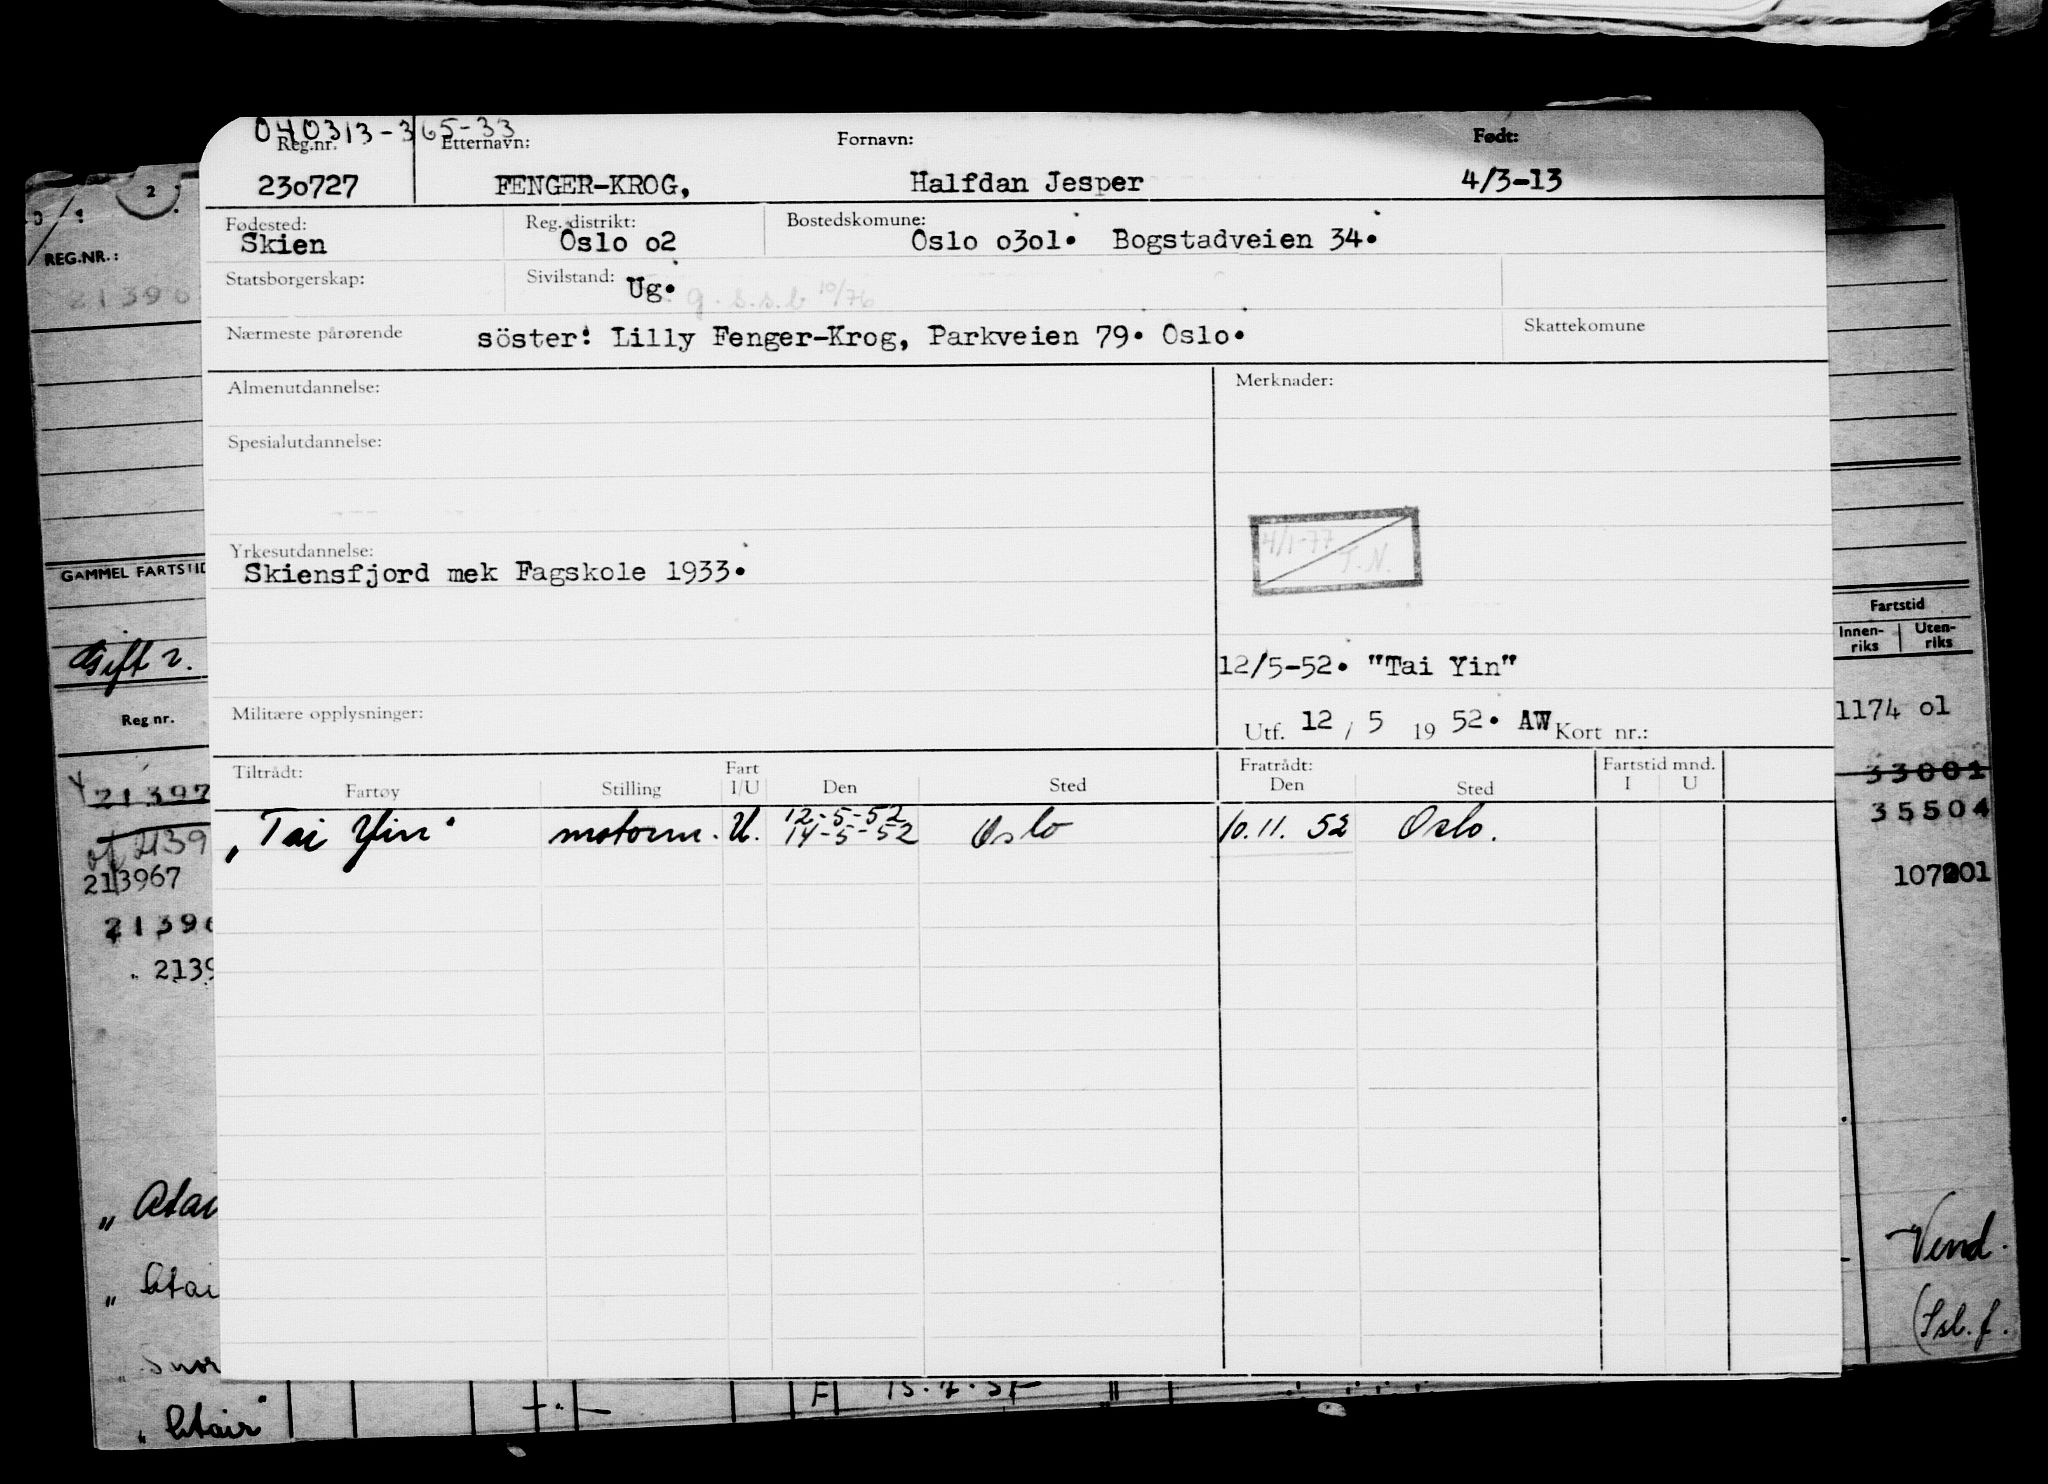 040313-365-33
Reg.nr. Etternavn: Fornavn: Født:
230727 FENGER-KROG, Halfdan Jesper 4/3-13
Fødested: Reg. distrikt: Bostedskomune:
Skien Oslo o2 Oslo o3o1. Bogstadveien 34.
Statsborgerskap: Sivilstand: Ug. g. s.s.b 10/76
Nærmeste pårørende söster: Lilly Fenger-Krog, Parkveien 79. Oslo. Skattekomune
Almenutdannelse: Merknader:
Spesialutdannelse:
4/1-77
T.N.
Yrkesutdannelse:
Skiensfjord mek Fagskole 1933.
12/5-52. "Tai Yin"
Militære opplysninger: Utf. 12 / 5 19 52. AW Kort nr.:
Tiltrådt: Fart Fratrådt: Fartstid mnd.
Fartøy Stilling I/U Den Sted Den Sted I U
"Tai Yin" motorm. U. 12-5-52
14-5-52 Oslo 10.11. 52 Oslo.
2
REG.NR.:
21396
GAMMEL FARTSTID
Gift 2.
Reg nr.
21397
of 2139
213967
21396
2139
"Atai
"Atai
"Snor
"Atair"
F 15.7.57
Fartstid
Innen-
riks Uten-
riks
1174 o1
33001
35504
107201
Vend.
(Ssl. f.